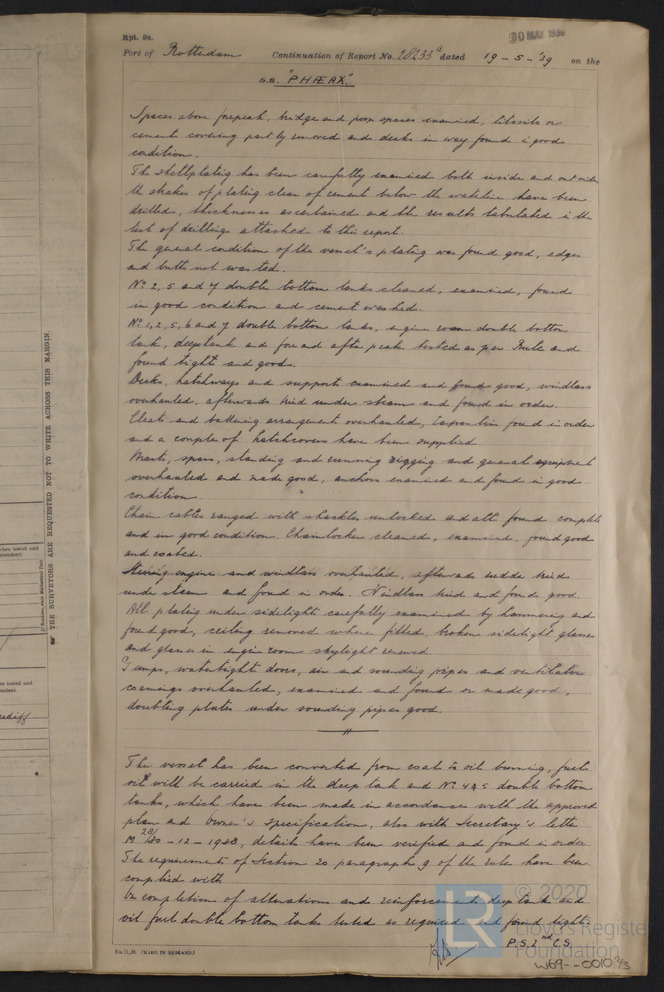 Rpt. 9a.
30 MAY 1939
Port of Rotterdam Continuation of Report No. 28233a dated 19-5-'39 on the
S.S. "PHÆAX."
Spaces above forepeak, bridge and poop spaces examined, litosilo or
cement covering partly removed and decks in way found in good
condition.
The shellplating has been carefully examined both inside and outside
the strakes of plating clear of cement below the waterline have been
drilled, thicknesses ascertained and the results tabulated in the
list of drillings attached to this report.
The general condition of the vessel's plating was found good, edges
and butts not wasted.
No 2, 5 and 7 double bottom tanks cleaned, examined, found
in good condition and cement washed.
No 1, 2, 5, 6 and 7 double bottom tanks, engine room double bottom
tank, deeptank and fore and after peak tested as per Rule and
found tight and good.
Decks, hatchways and supports examined and found good, windlass
overhauled, afterwards tried under steam and found in order.
Cleats and battening arrangement overhauled, tarpaulins found in order
and a couple of hatchcovers have been supplied
Masts, spars, standing and running rigging and general equipment
overhauled and made good, anchors examined and found in good
condition
Chain cables ranged with shackles unlocked and all found complete
and in good condition. Chainlocker cleaned, examined, found good
and coated.
Steering engine and windlass overhauled, afterwards rudder tried
under steam and found in order. Windlass tried and found good.
All plating under sidelights carefully examined by hammering and
found good, ceiling removed where fitted, broken sidelight glasses
and glasses in engine room skylight renewed
Pumps, watertight doors, air and sounding pipes and ventilator
coamings overhauled, examined and found or made good,
doubling plates under sounding pipes good.
The vessel has been converted from coal to oil burning, fuel
oil will be carried in the deep tank and No 4 & 5 double bottom
tanks, which have been made in accordance with the approved
plan and Owner's specification, also with Secretary's letter
M 28/30-12-1938, details have been verified and found in order
The requirements of Section 20 paragraph 9 of the rules have been
complied with
On completion of alterations and reinforcements deep tank and
oil fuel double bottom tanks tested as required and found tight.
P.S. 2nd C.S.
2m 11,38. (MADE IN ENGLAND.)
THE SURVEYORS ARE REQUESTED NOT TO WRITE ACROSS THIS MARGIN.
LR
© 2020
Lloyd's Register
Foundation
W69--0010 2/3